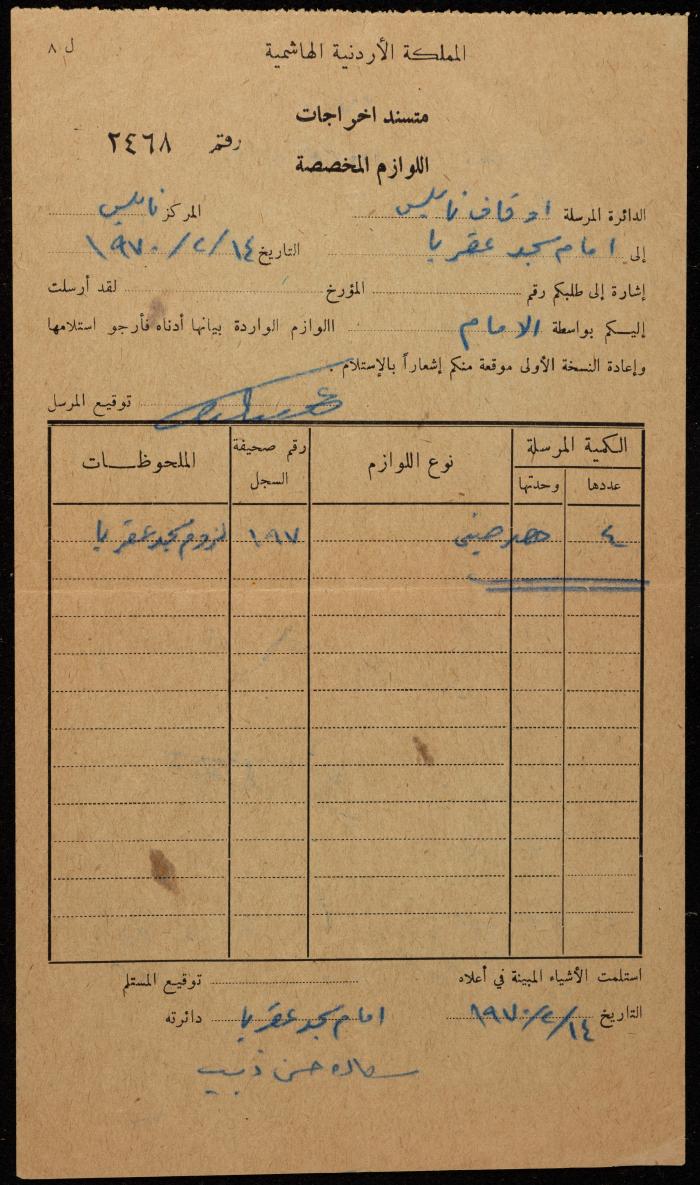 ل ٨
المملكة الأردنية الهاشمية
مستند اخراجات
رقم ٢٤٦٨
اللوازم المخصصة
الدائرة المرسلة اوقاف نابلس المركز نابلس
إلى امام مسجد عقربا التاريخ ١٤/٢/١٩٧٠
إشارة إلى طلبكم رقم المؤرخ لقد أرسلت
إليكم بواسطة الامام االلوازم الواردة بيانها أدناه فأرجو استلامها
وإعادة النسخة الأولى موقعة منكم إشعاراً بالإستلام .
توقيع المرسل
الكمية المرسلة نوع اللوازم رقم صحيفة السجل الملحوظات
عددها وحدتها
٤ حصر صيني ١٩٧ لزوم مسجد عقربا
استلمت الأشياء المبينة في أعلاه توقيع المستلم
التاريخ ١٤/٢/١٩٧٠ دائرته امام مسجد عقربا
حسن ذيب